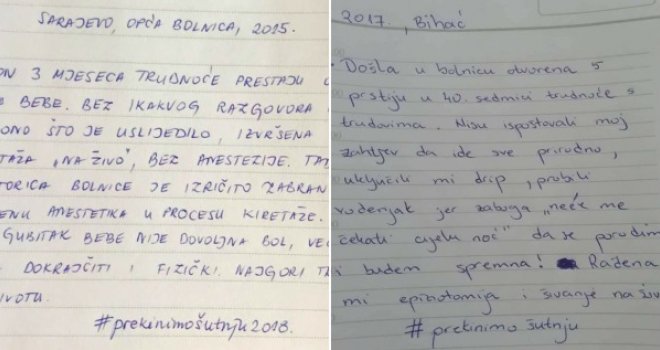 SARAJEVO, OPĆA BOLNICA, 2015.
ON 3 MJESECA TRUDNOĆE PRESTAJU
BEBE. BEZ IKAKVOG RAZGOVORA
ONO ŠTO JE USLIJEDILO, IZVRŠENA
TAŽA „NA ŽIVO", BEZ ANESTEZIJE.
TORICA BOLNICE JE IZRIČITO ZABRAN
ENU ANESTETIKA U PROCESU KIRETAŽE.
GUBITAK BEBE NIJE DOVOLJNA BOL, VEĆ
DOKRAJČITI I FIZIČKI. NAJGORI
IVOTU.
#prekinimošutnju2018.
2017., Bihać
Došla u bolnicu otvorena 5
prstiju u 40. sedmici trudnoće s
trudovima. Nisu ispoštovali moj
zahtjev da ide sve prirodno,
uključili mi drip, probili
vodenjak jer zaboga „neće me
čekati cijelu noć" da se porodim
i budem spremna! Rađena
mi epiziotomija i šivanje na živ
# prekinimo šutnju